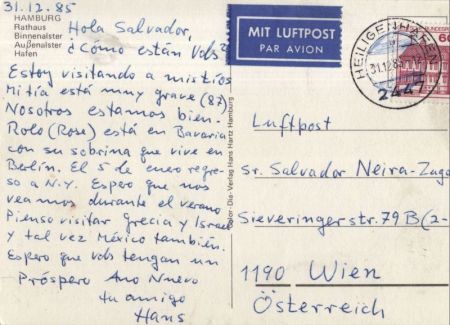 31.12.85
HAMBURG
Rathaus
Binnenalster
Außenalster
Hafen
Hola Salvador,
¿Cómo están Vds?
Estoy visitando a mis tíos
Mi tía está muy grave (87)
Nosotros estamos bien.
Rolo (Rose) está en Bavaria
con su sobrina que vive en
Berlin. El 5 de enero regre-
so a N.Y. Espero que nos
veamos durante el verano
Pienso visitar Grecia y Israel
y tal vez México también.
Espero que vds tengan un
Próspero Ano Nuevo
tu amigo
Hans
Color-Dia-Verlag Hans Hartz Hamburg
MIT LUFTPOST
PAR AVION
HEILIGENHAFEN
31.12.85
2447
60
Luftpost
Sr. Salvador Neira-Zuga
Sieveringerstr. 79 B (2-
1190 Wien
Österreich